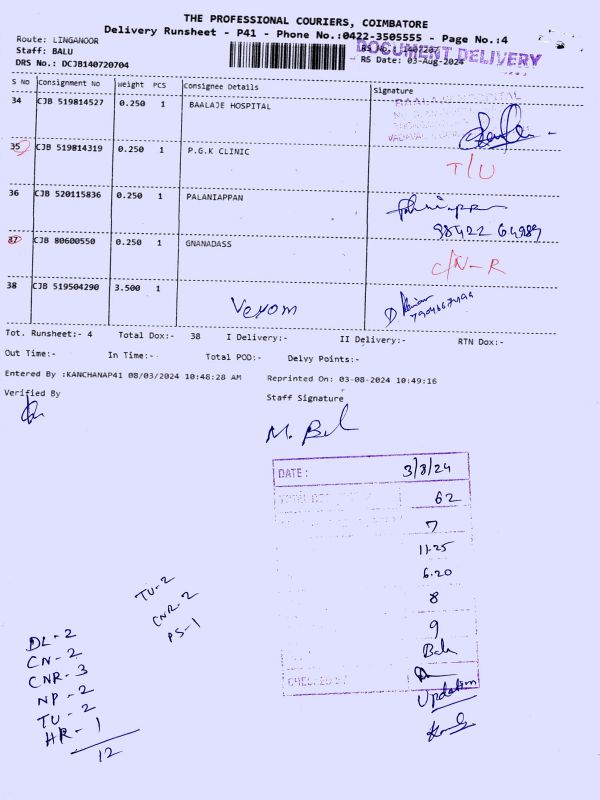 THE PROFESSIONAL COURIERS, COIMBATORE
Delivery Runsheet - P41 - Phone No.:0422-3505555 - Page No.:4
Route: LINGANOOR
Staff: BALU
DRS No.: DCJB140720704
DOCUMENT DELIVERY
RS Date: 03-Aug-2024
S No Consignment No Weight PCS Consignee Details Signature
34 CJB 519814527 0.250 1 BAALAJE HOSPITAL
35 CJB 519814319 0.250 1 P.G.K CLINIC T/U
36 CJB 520115836 0.250 1 PALANIAPPAN
98422 64989
37 CJB 80600550 0.250 1 GNANADASS C/N-R
38 CJB 519504290 3.500 1
Tot. Runsheet:- 4 Total Dox:- 38 I Delivery:- II Delivery:- RTN Dox:-
Out Time:- In Time:- Total POD:- Delvy Points:-
Entered By :KANCHANAP41 08/03/2024 10:48:28 AM Reprinted On: 03-08-2024 10:49:16
Verified By Staff Signature
M. Bal
DATE: 3/8/24
62
7
11.25
6.20
8
9
Bale
CHECKED BY
Updation
TU-2
CNR-2
PS-1
DL-2
CN-2
CNR-3
NP-2
TU-2
HR-1
12